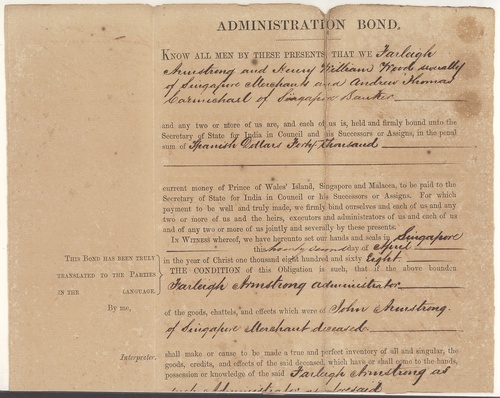 ADMINISTRATION BOND.
KNOW ALL MEN BY THESE PRESENTS, THAT WE Farleigh
Armstrong and Henry William Wood usually
of Singapore Merchants and Andrew Thomas
Carmichael of Singapore Banker
and any two or more of us are, and each of us is, held and firmly bound unto the
Secretary of State for India in Council and his Successors or Assigns, in the penal
sum of Spanish Dollars Forty Thousand
current money of Prince of Wales' Island, Singapore and Malacca, to be paid to the
Secretary of State for India in Council or his Successors or Assigns. For which
payment to be well and truly made, we firmly bind ourselves and each of us and any
two or more of us and the heirs, executors and administrators of us and each of us
and of any two or more of us jointly and severally by these presents.
IN WITNESS whereof, we have hereunto set our hands and seals in Singapore
this day of April
in the year of Christ one thousand eight hundred and sixty Eight.
THE CONDITION of this Obligation is such, that if the above bounden
Farleigh Armstrong administrator
of the goods, chattels, and effects which were of John Armstrong
of Singapore Merchant deceased
shall make or cause to be made a true and perfect inventory of all and singular, the
goods, credits, and effects of the said deceased, which have or shall come to the hands,
possession or knowledge of the said Farleigh Armstrong as
such Administrator as aforesaid
THIS BOND HAS BEEN TRULY
TRANSLATED TO THE PARTIES
IN THE LANGUAGE.
By me,
Interpreter.